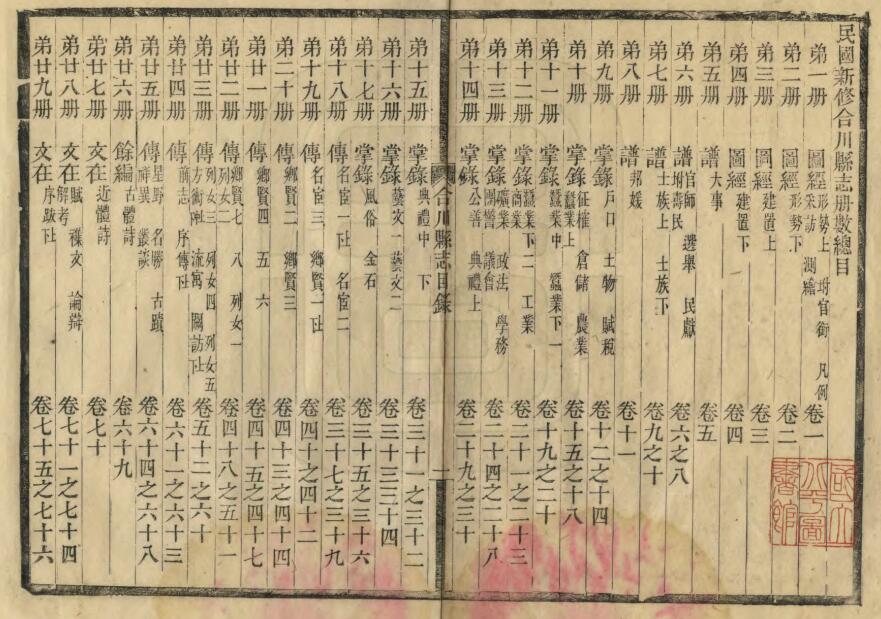 民國新修合川縣志册數總目
弟一册 圖經 形勢上 采訪 測繪 坿官銜 凡例 卷一
弟二册 圖經 形勢下 卷二
弟三册 圖經 建置上 卷三
弟四册 圖經 建置下 卷四
弟五册 譜 大事 卷五
弟六册 譜 官師 選舉 民獻 坿壽民 卷六之八
弟七册 譜 士族上 士族下 卷九之十
弟八册 譜 邦媛 卷十一
弟九册 掌錄 戶口 土物 賦稅 卷十二之十四
弟十册 掌錄 征榷 倉儲 農業 蠶業上 卷十五之十八
弟十一册 掌錄 蠶業中 蠶業下一 卷十九之二十
弟十二册 掌錄 蠶業下二 工業 商業 卷二十一之二十三
弟十三册 掌錄 礦業 政法 學務 團警 議會 卷二十四之二十八
弟十四册 掌錄 公善 典禮上 卷二十九之三十
合川縣志目錄 一
弟十五册 掌錄 典禮中 下 卷三十一之三十二
弟十六册 掌錄 藝文一 藝文二 卷三十三三十四
弟十七册 掌錄 風俗 金石 卷三十五之三十六
弟十八册 傳 名宦一上 名宦二 卷三十七之三十九
弟十九册 傳 名宦三 鄉賢一上 卷四十之四十二
弟二十册 傳 鄉賢二 鄉賢三 卷四十三之四十四
弟廿一册 傳 鄉賢四 五 六 卷四十五之四十七
弟廿二册 傳 鄉賢七 八 列女一 列女二 卷四十八之五十一
弟廿三册 傳 列女三 列女四 列女五 方技 流寓 闕訪上下 卷五十二之六十
弟廿四册 傳 舊志 序傳上 卷六十一之六十三
弟廿五册 傳 星野 名勝 古蹟 祥異 叢談 卷六十四之六十八
弟廿六册 餘編 古體詩 卷六十九
弟廿七册 文在 近體詩 卷七十
弟廿八册 文在 賦 襍文 論辯 解考 卷七十一之七十四
弟廿九册 文在 序跋上下 卷七十五之七十六
國立北平圖書館